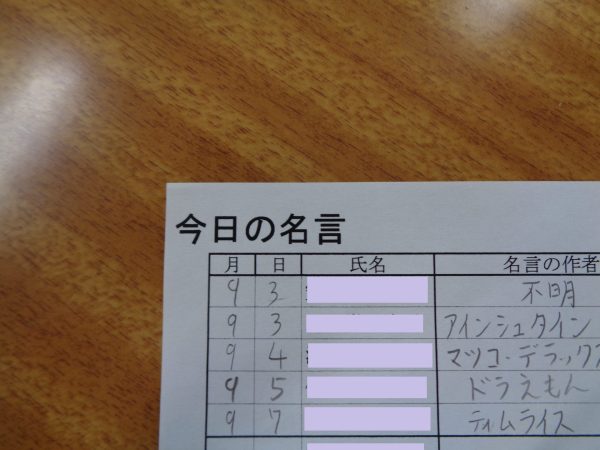 今日の名言
月 日 氏名 名言の作者
9 3 不明
9 3 アインシュタイン
9 4 マツコ・デラックス
9 5 ドラえもん
9 7 ティムライス